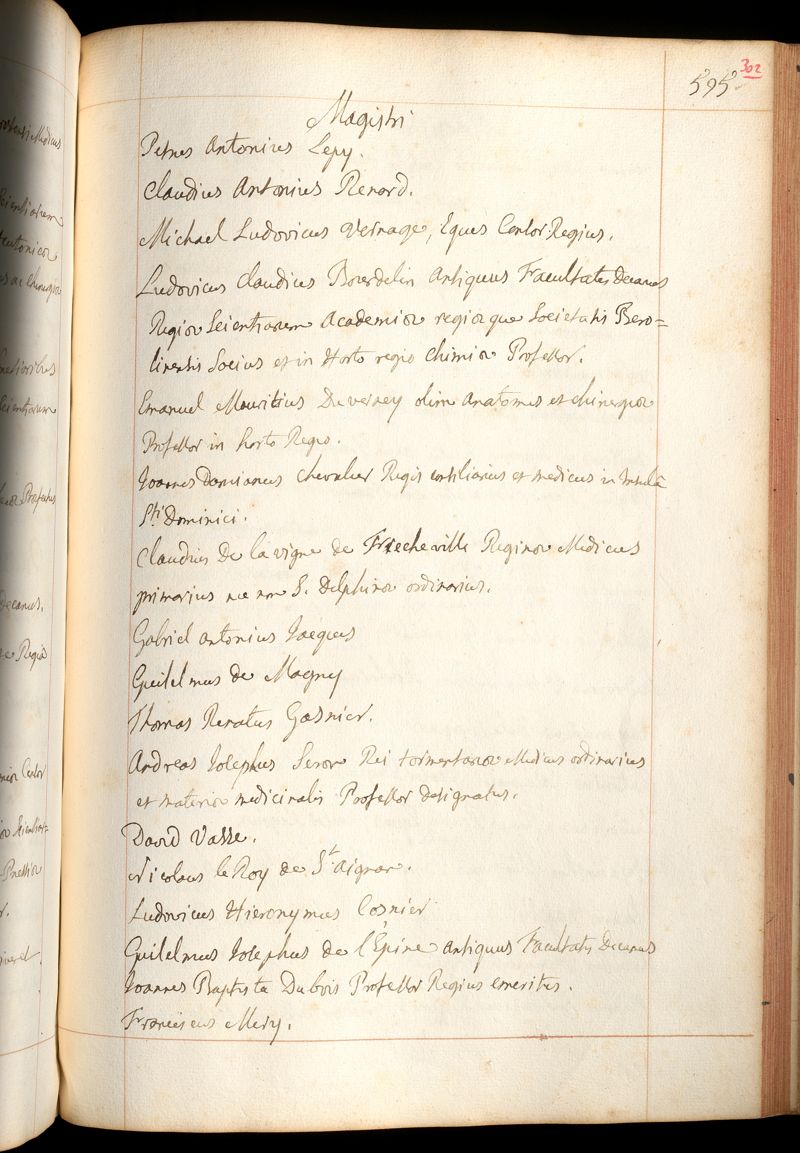 302
595
Magistri
Petrus Antonius Lepy.
Claudius Antonius Renard.
Michael Ludovicus Vernage, Eques Regius.
Ludovicus Claudius Bourdelin Antiquus Facultatis Decanus
Regiæ Scientiarum Academiæ regiæque Societatis Bero=
linensis Socius et in Horto regio Chimiæ Professor.
Emanuel Mauritius Duverney olim Anatomes et chirurgiæ
Professor in horto Regio.
Joannes Damianus Chevalier Regis consiliarius et medicus in Insulâ
Sti Dominici.
Claudius De la vigne de Frecheville Reginæ Medicus
primarius nec non S. Delphinæ ordinarius.
Gabriel antonius Jacques
Guilelmus de Magny
Thomas Renatus Gasnier.
Andreas Josephus Seron Rei tormentariæ Medicus ordinarius
et materiæ medicinalis Professor designatus.
David Vasse.
Nicolaus le Roy de St Aignan.
Ludovicus Hieronymus Cosnier
Guilelmus Josephus de l'Épine antiquus Facultatis Decanus
Joannes Baptista Dubois Professor Regius emeritus.
Franciscus Mery.